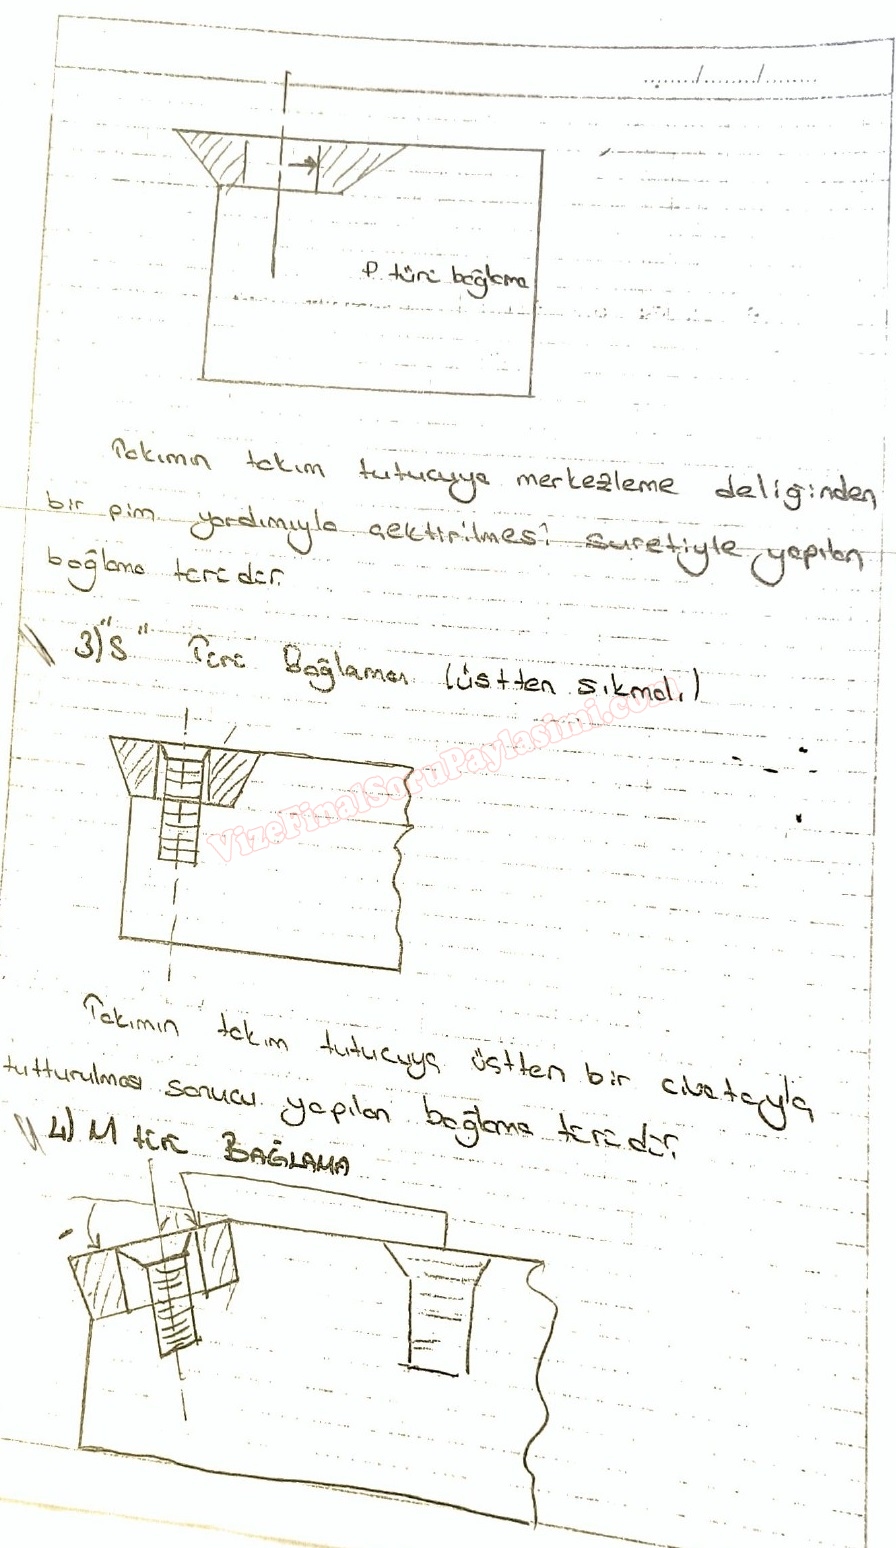 ......../......../........
P türü bağlama
Takımın takım tutucuya merkezleme deliğinden
bir pim yardımıyla çektirilmesi suretiyle yapılan
bağlama türüdür.
3) "S" Türü Bağlaması (üstten sıkmalı)
VizeFinalSoruPaylasimi.com
Takımın takım tutucuya üstten bir civatayla
tutturulması sonucu yapılan bağlama türüdür.
4) M türü BAĞLAMA